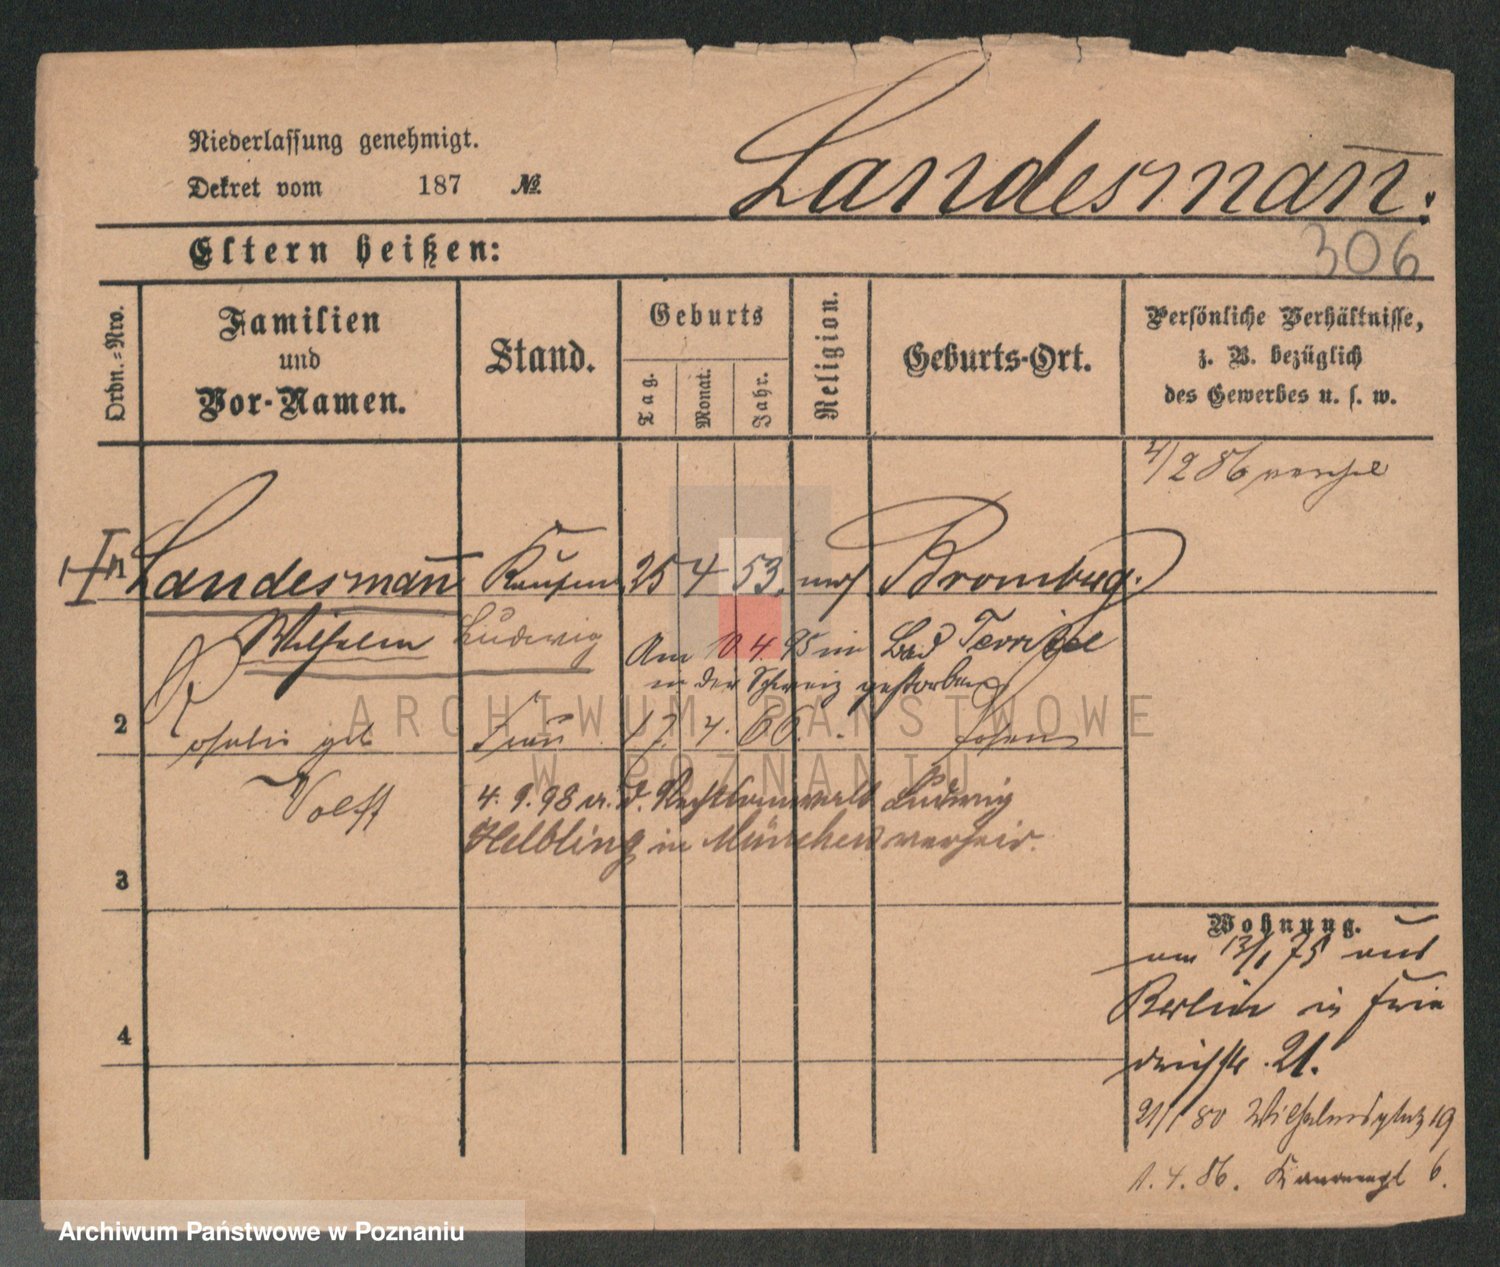 Niederlassung genehmigt.
Dekret vom 187 №
Landesmann.
306
Eltern heißen:
Ordn.-Nro.
Familien
und
Vor-Namen.
Stand.
Geburts
Tag.
Monat.
Jahr.
Religion.
Geburts-Ort.
Persönliche Verhältnisse,
z. B. bezüglich
des Gewerbes u. s. w.
4/2 86
1 Landesmann Kaufm 25 4 53. mos Bromberg.
Wilhelm Ludwig
Am 10.4.95 in Bad
in der Schweiz gestorben
2 Rosalie geb Frau 17. 4. 66. Posen
Wolff
4. 9. 98 m. d. Rechtsanwalt Ludwig
Helbling in München verheir.
3
4
Wohnung.
am 13/1 75 aus
Berlin in Frie
drichstr. 21.
21/1 80 Wilhelmsplatz 19
1. 4. 86. 6.
ARCHIWUM PAŃSTWOWE
W POZNANIU
Archiwum Państwowe w Poznaniu